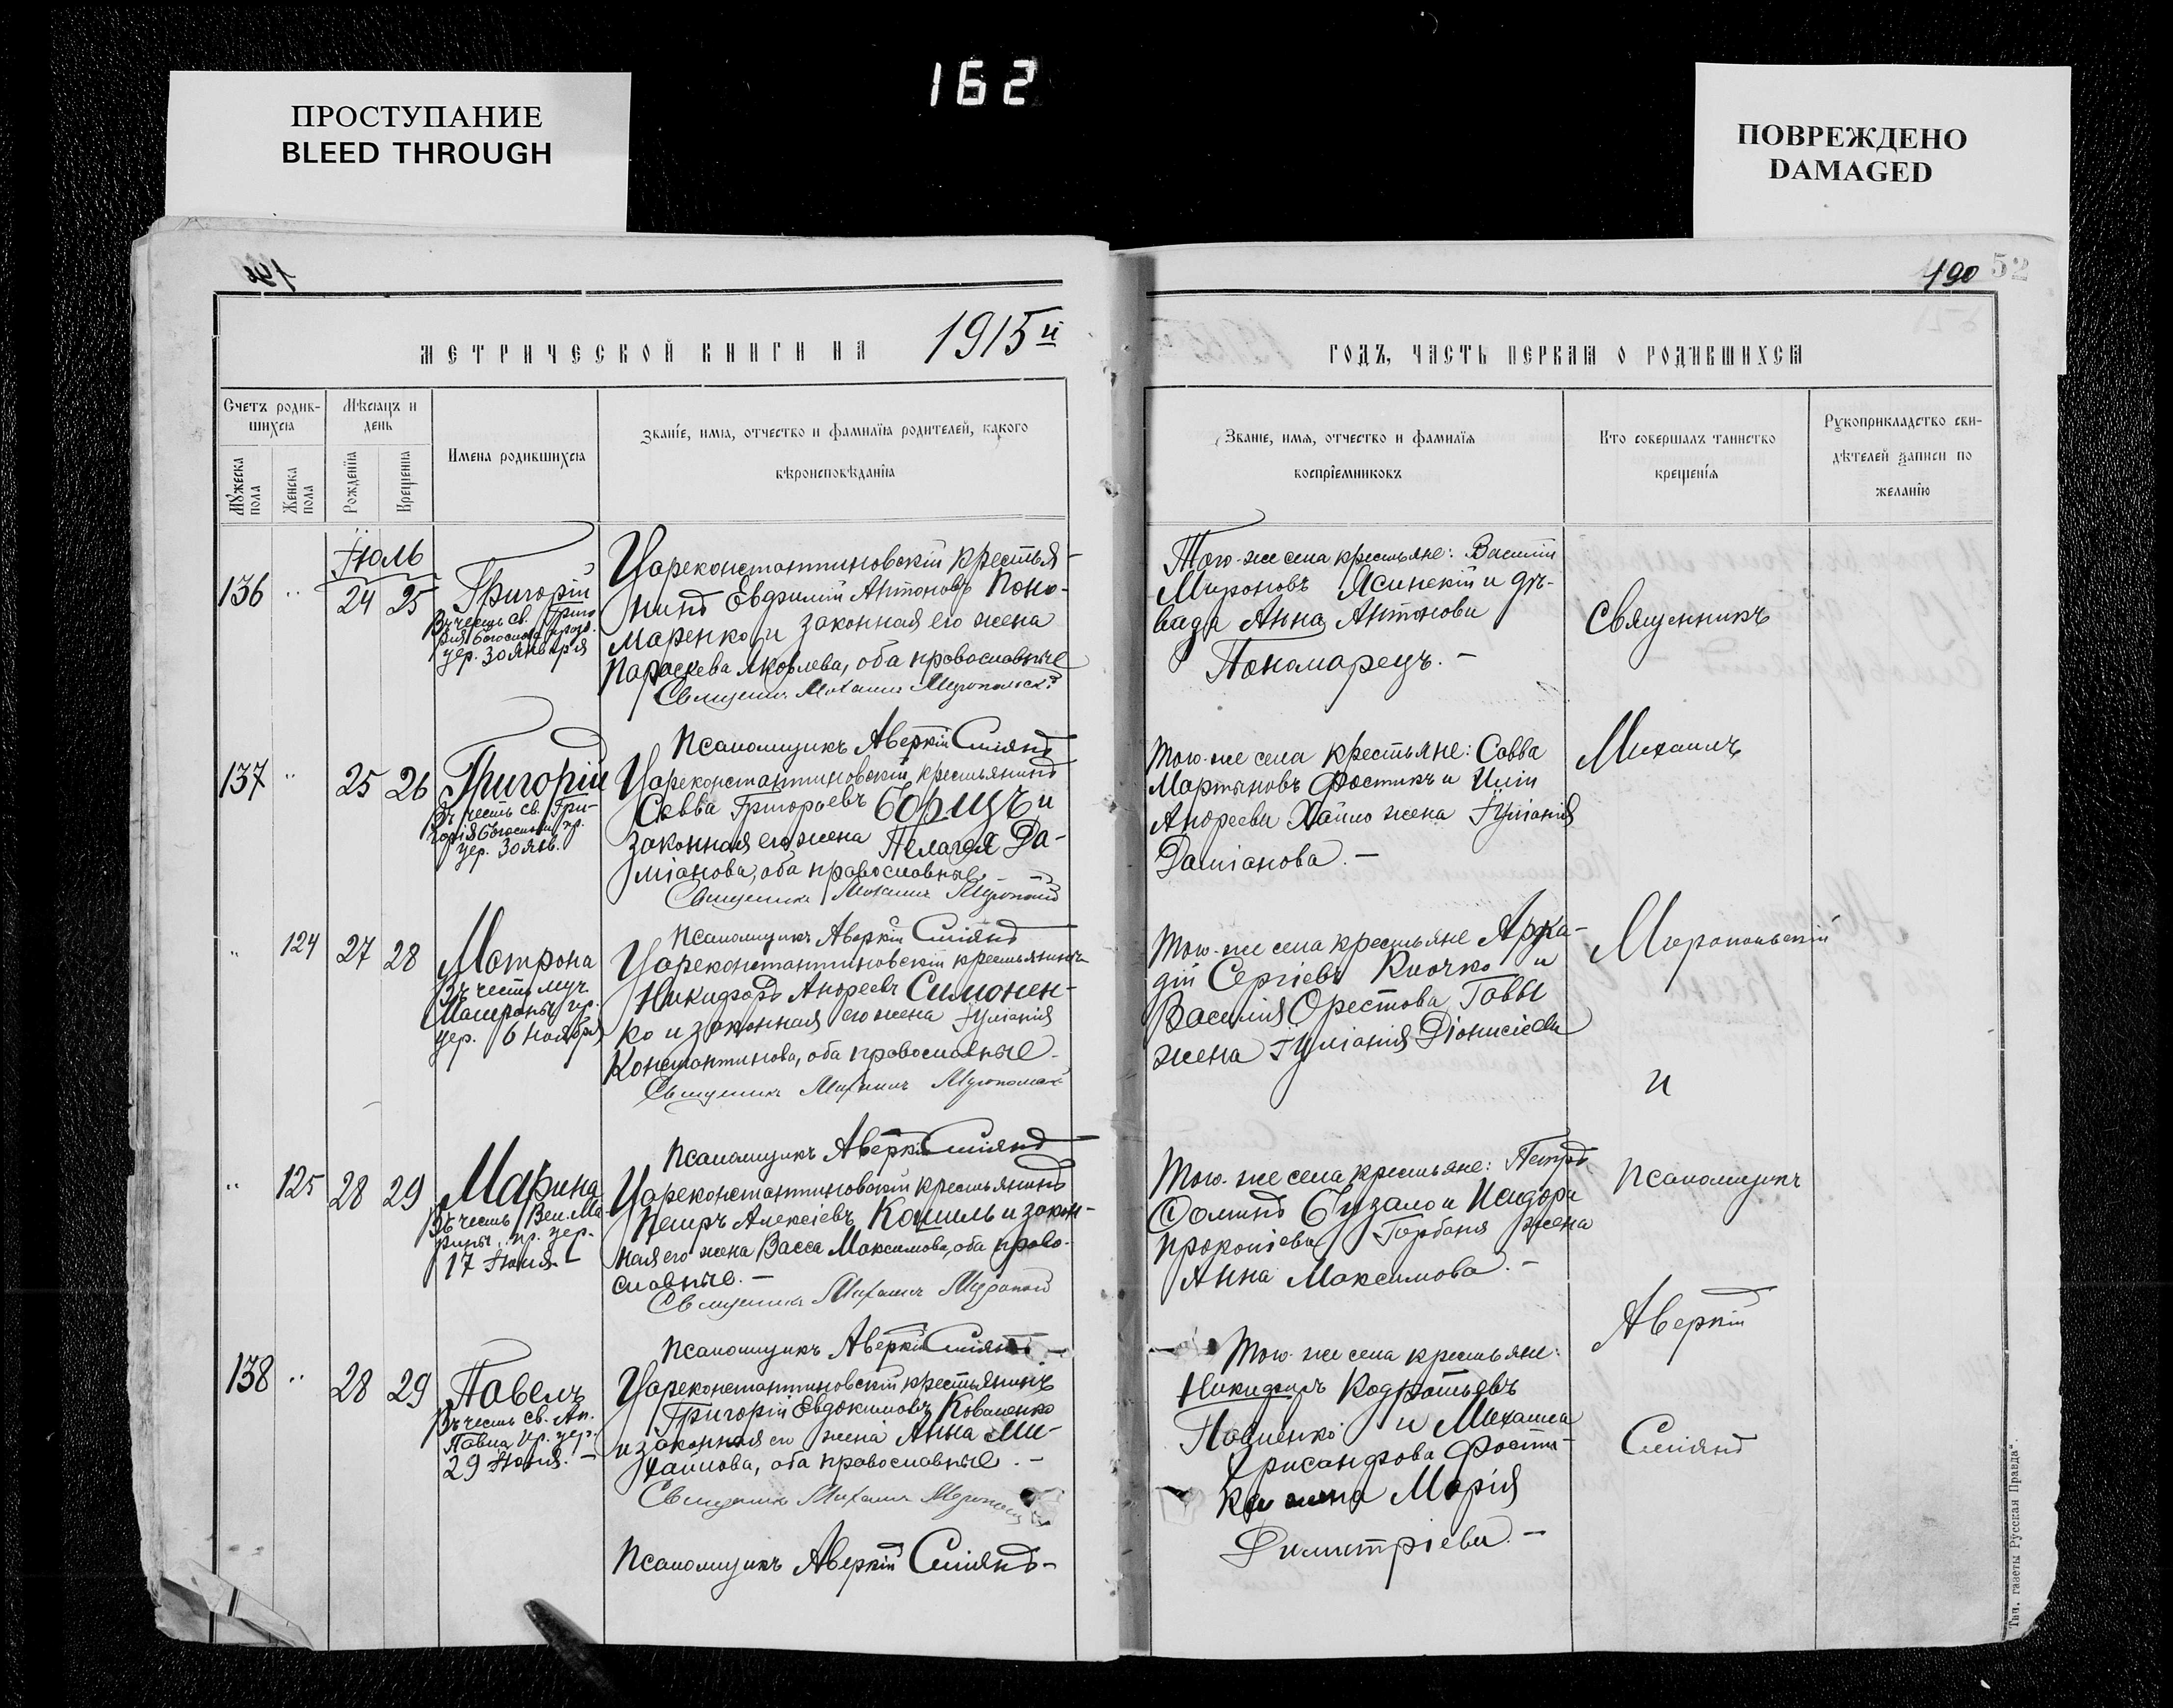 162
ПРОСТУПАНИЕ
BLEED THROUGH
ПОВРЕЖДЕНО
DAMAGED
190 52
МЕТРИЧЕСКОЙ КНИГИ НА 1915й
Счетъ родив-
шихся
Мѣсяцъ и
день
Мужеска
пола
Женска
пола
Рожденія
Крещенія
Имена родившихся
Званіе, имя, отчество и фамилія родителей, какого
вѣроисповѣданія
Іюль
136 " 24 25
Григорій
Въ честь св. Григо
рія Богослова празд.
цер. 30 Января
Цареконстантиновскій крестья-
нинъ Евфимій Антоновъ Поно-
маренко и законная его жена
Параскева Яковлева, оба православные
Священникъ Михаилъ Миропольскій
Псаломщикъ Аверкій Сміянъ
137 " 25 26
Григорій
Въ честь св. Гри-
горія Богослова пр.
цер. 30 янв.
Цареконстантиновскій крестьянинъ
Савва Григорьевъ Борщъ и
законная его жена Пелагея Да-
міанова, оба православные
Священникъ Михаилъ
Псаломщикъ Аверкій Сміянъ
" 124 27 28
Матрона
Въ честь муч.
Матроны пр.
цер. 6 ноября
Цареконстантиновскій крестьянинъ
Никифоръ Андреевъ Симонен-
ко и законная его жена Іуліанія
Константинова, оба православные
Священникъ Михаилъ
Псаломщикъ Аверкій Сміянъ
" 125 28 29
Марина
Въ честь Вел. Ма
рины, пр. цер.
17 Іюля
Цареконстантиновскій крестьянинъ
Петръ Алексіевъ Кошиль и закон-
ная его жена Васса Максимова, оба право-
славные. –
Священникъ Михаилъ
Псаломщикъ Аверкій Сміянъ
138 " 28 29
Павелъ
Въ честь св. Ап.
Павла пр. цер.
29 Іюня. –
Цареконстантиновскій крестьянинъ
Григорій Евдокимовъ Коваленко
и законная его жена Анна Ми-
хайлова, оба православные. –
Священникъ Михаилъ
Псаломщикъ Аверкій Сміянъ –
ГОДЪ, ЧАСТЬ ПЕРВАЯ О РОДИВШИХСЯ
Званіе, имя, отчество и фамилія
воспріемниковъ
Кто совершалъ таинство
крещенія
Рукоприкладство сви-
дѣтелей записи по
желанію
Того-же села крестьяне: Василій
Мироновъ Ясинскій и дѣ-
вица Анна Антонова
Пономарецъ. –
Того-же села крестьяне: Савва
Мартыновъ Фостикъ и Иліи
Андреева Хайло жена Іуліанія
Даміанова. –
Того-же села крестьяне Арка-
дій Сергіевъ Клочко и
Василія Орестова Говы
жена Іуліанія Діонисіева
Того-же села крестьяне: Петръ
Фоминъ Бузало и Исидора
Прокопіева Горбаня жена
Анна Максимова. –
Того же села крестьяне:
Павленко и Михаила
Хрисанфова Фости-
ка жена Марія
Димитріева. –
Священникъ
Михаилъ
Миропольскій
и
Псаломщикъ
Аверкій
Сміянъ
Тип. газеты Русская Правда".